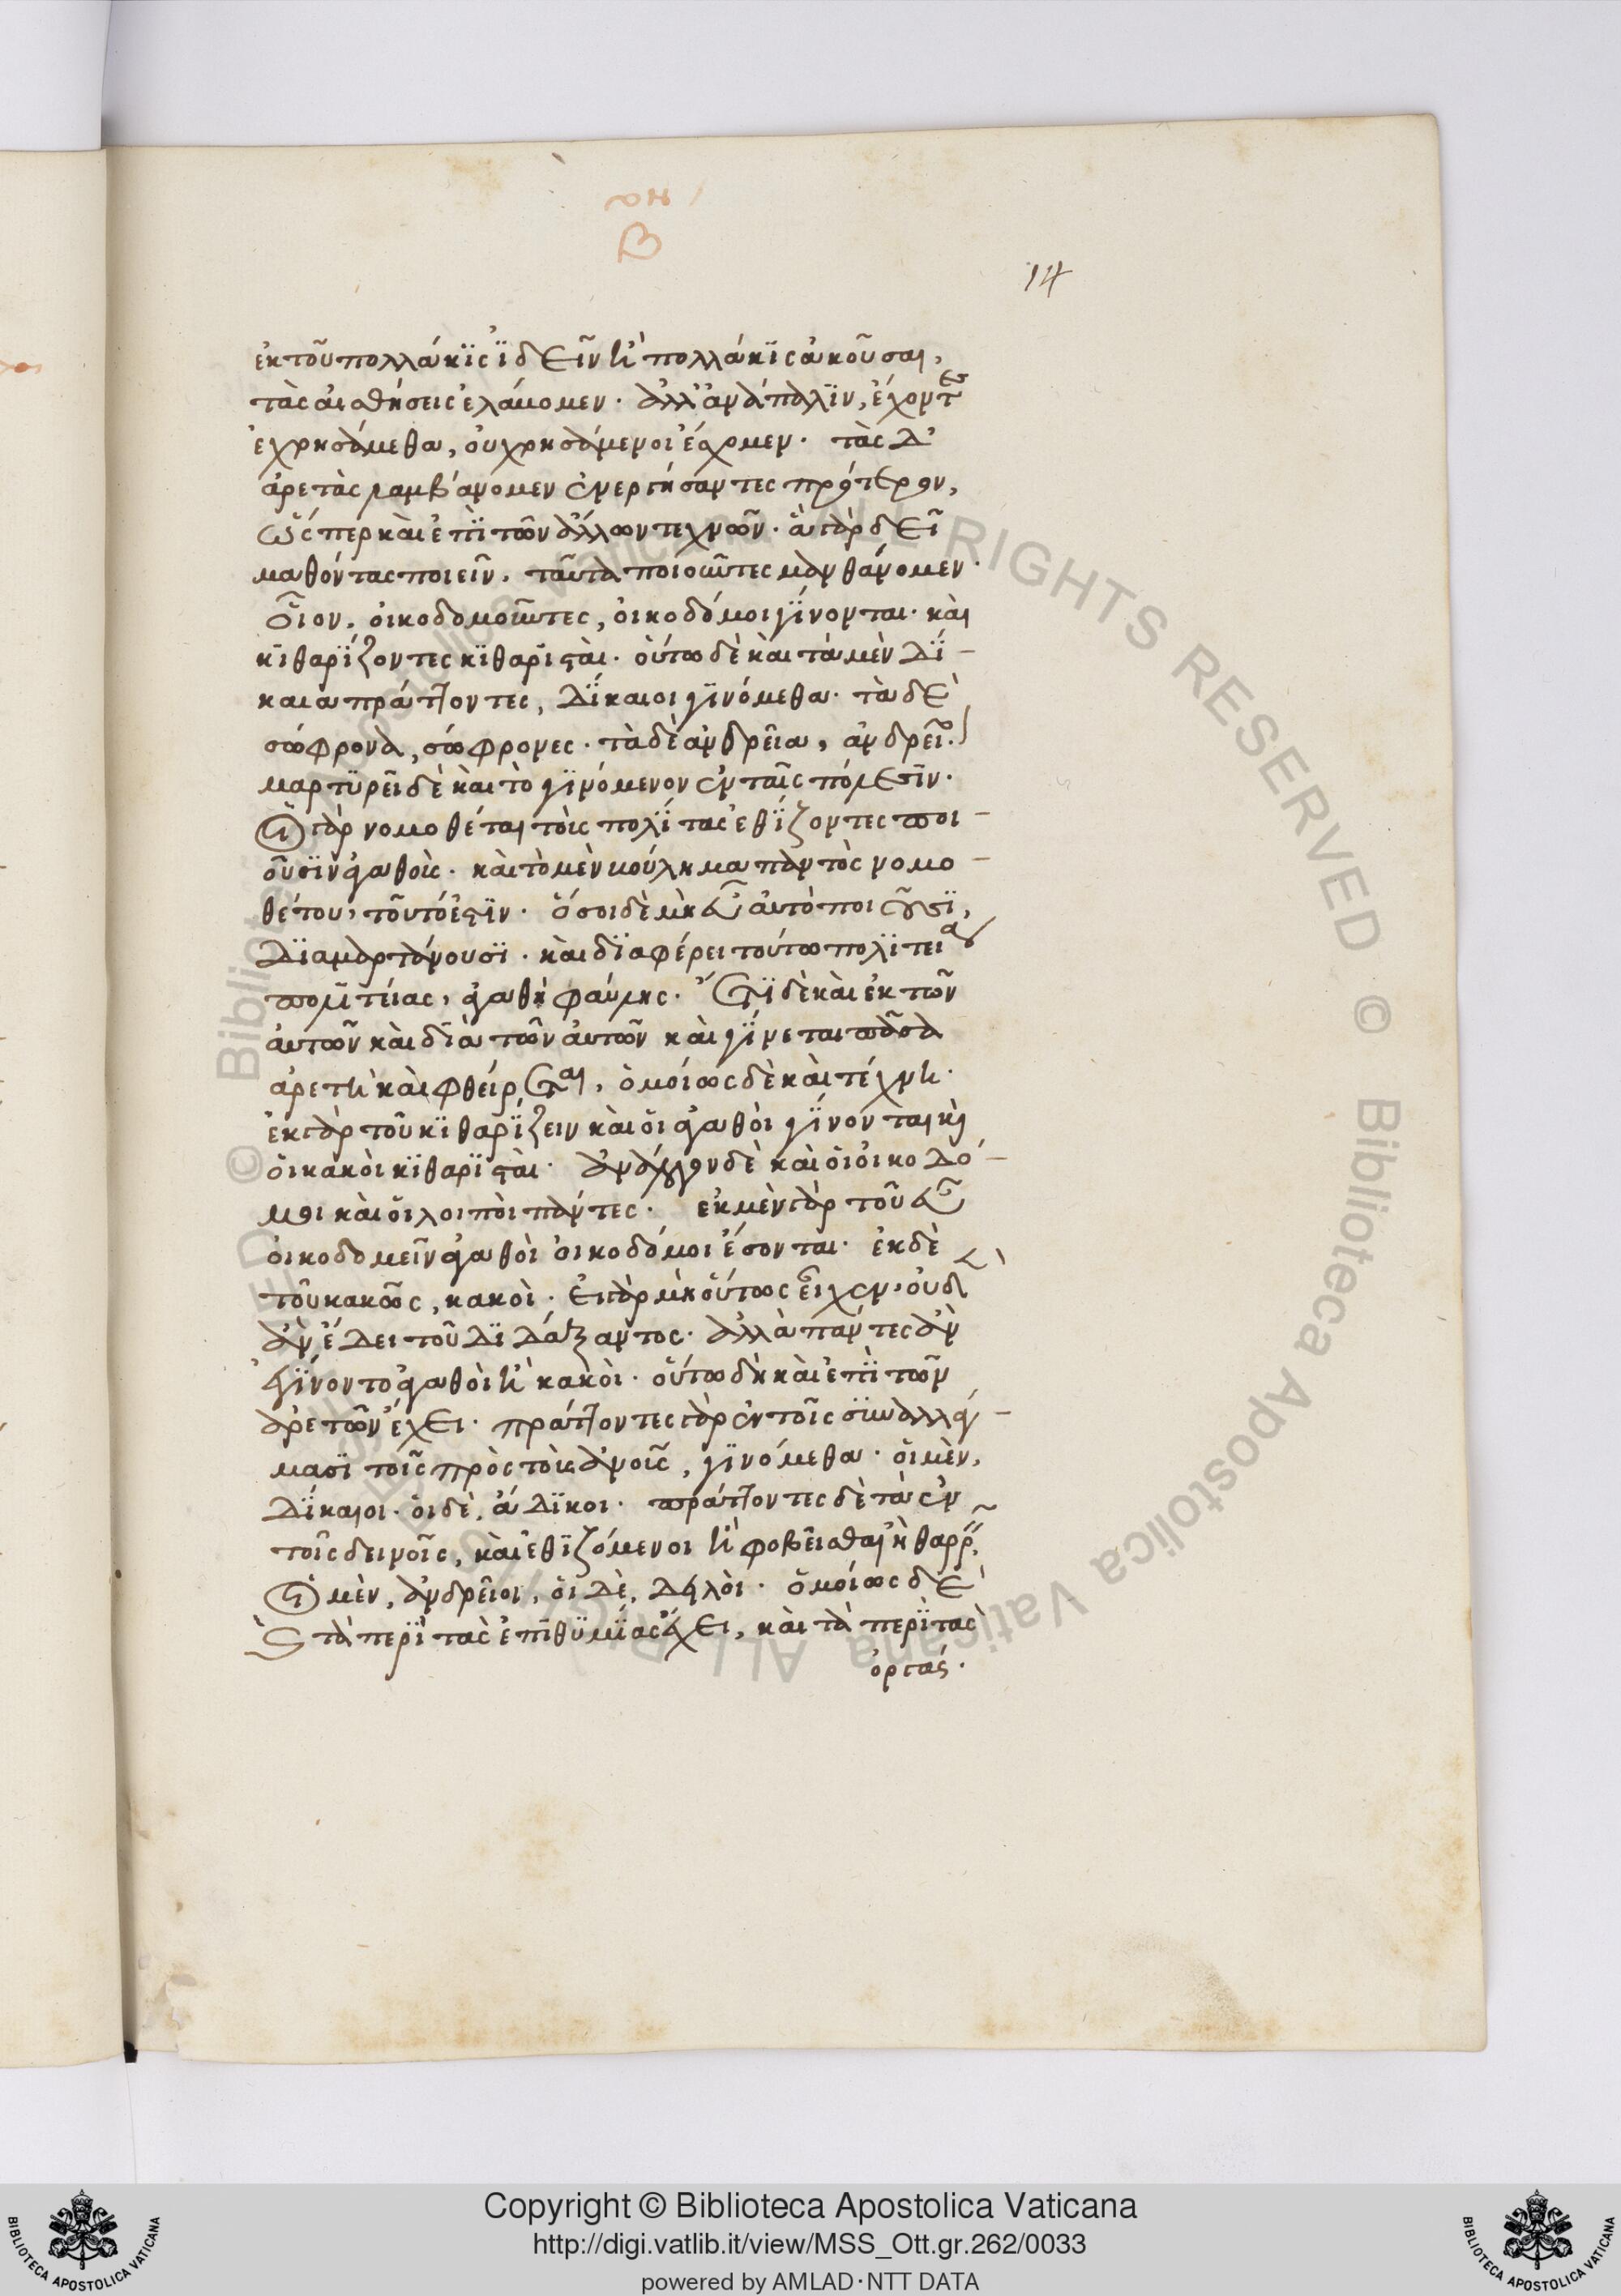 Β
14
ἐκ τοῦ πολλάκϊς ϊδεῖν ἢ πολλάκϊς ἀκοῦσαι,
τὰς αἰσθήσεις ἐλάβομεν· ἀλλ' ἀνάπαλϊν, ἔχοντες
ἐχρησάμεθα, οὐ χρησάμενοι ἔσχομεν· τὰς δ'
ἀρετὰς λαμβάνομεν ἐνεργήσαντες πρότερον,
ὥσπερ καὶ ἐπῒ τῶν ἄλλων τεχνῶν· ἃ γὰρ δεῖ
μαθόντας ποιεῖν, ταῦτα ποιοῦντες μανθάνομεν·
οἷον, οἰκοδομοῦντες, οἰκοδόμοι γΐνονται· καὶ
κϊθαρΐζοντες κϊθαρϊσταί· οὕτω δὲ καὶ τὰ μὲν δΐ-
καια πράττοντες, δΐκαιοι γϊνόμεθα· τὰ δὲ
σώφρονα, σώφρονες· τὰ δὲ ἀνδρεῖα, ἀνδρεῖοι·
μαρτϋρεῖ δὲ καὶ τὸ γϊνόμενον ἐν ταῖς πόλεσϊν·
οἱ γὰρ νομοθέται τοὺς πολΐτας ἐθΐζοντες ποι-
οῦσϊν ἀγαθούς· καὶ τὸ μὲν βούλημα παντὸς νομο-
θέτου, τοῦτό ἐστϊν· ὅσοι δὲ μὴ εὖ αὐτὸ ποιοῦσϊ,
δϊαμαρτάνουσϊ· καὶ δϊαφέρει τούτω πολϊτεία
πολϊτείας, ἀγαθὴ φαύλης· ἔτϊ δὲ καὶ ἐκ τῶν
αὐτῶν καὶ δϊὰ τῶν αὐτῶν καὶ γΐνεται πᾶσα
ἀρετὴ καὶ φθείρεται, ὁμοίως δὲ καὶ τέχνη·
ἐκ γὰρ τοῦ κϊθαρΐζειν καὶ οἱ ἀγαθοὶ γΐνονται καὶ
οἱ κακοὶ κϊθαρϊσταί· ἀνάλογον δὲ καὶ οἱ οἰκοδό-
μοι καὶ οἱ λοιποὶ πάντες· ἐκ μὲν γὰρ τοῦ εὖ
οἰκοδομεῖν ἀγαθοὶ οἰκοδόμοι ἔσονται· ἐκ δὲ
τοῦ κακῶς, κακοὶ· εἰ γὰρ μὴ οὕτως εἶχεν, οὐδὲν
ἂν ἔδει τοῦ δϊδάξαντος· ἀλλὰ πάντες ἂν
ἐγΐνοντο ἀγαθοὶ ἢ κακοὶ· οὕτω δὴ καὶ ἐπῒ τῶν
ἀρετῶν ἔχει· πράττοντες γὰρ ἐν τοῖς σϋναλλάγ-
μασϊ τοῖς πρὸς τοὺς ἀνους, γϊνόμεθα· οἱ μὲν,
δΐκαιοι· οἱ δὲ, ἄδϊκοι· πράττοντες δὲ τὰ ἐν
τοῖς δεινοῖς, καὶ ἐθϊζόμενοι ἢ φοβεῖσθαι ἢ θαρρεῖν,
οἱ μὲν, ἀνδρεῖοι, οἱ δὲ, δειλοὶ· ὁμοίως δὲ
καὶ τὰ περῒ τὰς ἐπϊθϋμΐας ἔχει, καὶ τὰ περῒ τὰς
ὀργάς·
Copyright © Biblioteca Apostolica Vaticana
http://digi.vatlib.it/view/MSS_Ott.gr.262/0033
powered by AMLAD·NTT DATA
BIBLIOTECA APOSTOLICA VATICANA
BIBLIOTECA APOSTOLICA VATICANA